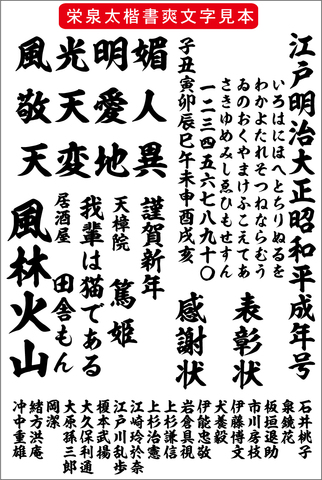 栄泉太楷書爽文字見本
江戸明治大正昭和平成年号
いろはにほへとちりぬるを
わかよたれそつねならむう
ゐのおくやまけふこえてあ
さきゆめみしゑひもせすん
一二三四五六七八九十〇
子丑寅卯辰巳午未申酉戌亥
媚人異
明愛地
光天変
風敬天
表彰状
感謝状
謹賀新年
篤姫
天樟院
我輩は猫である
田舎もん
居酒屋
風林火山
石井桃子
泉鏡花
板垣退助
市川房枝
伊藤博文
犬養毅
伊能忠敬
岩倉具視
上杉謙信
上杉治憲
江崎玲於奈
江戸川乱歩
榎本武揚
大久保利通
大原孫三郎
岡潔
緒方洪庵
沖中重雄